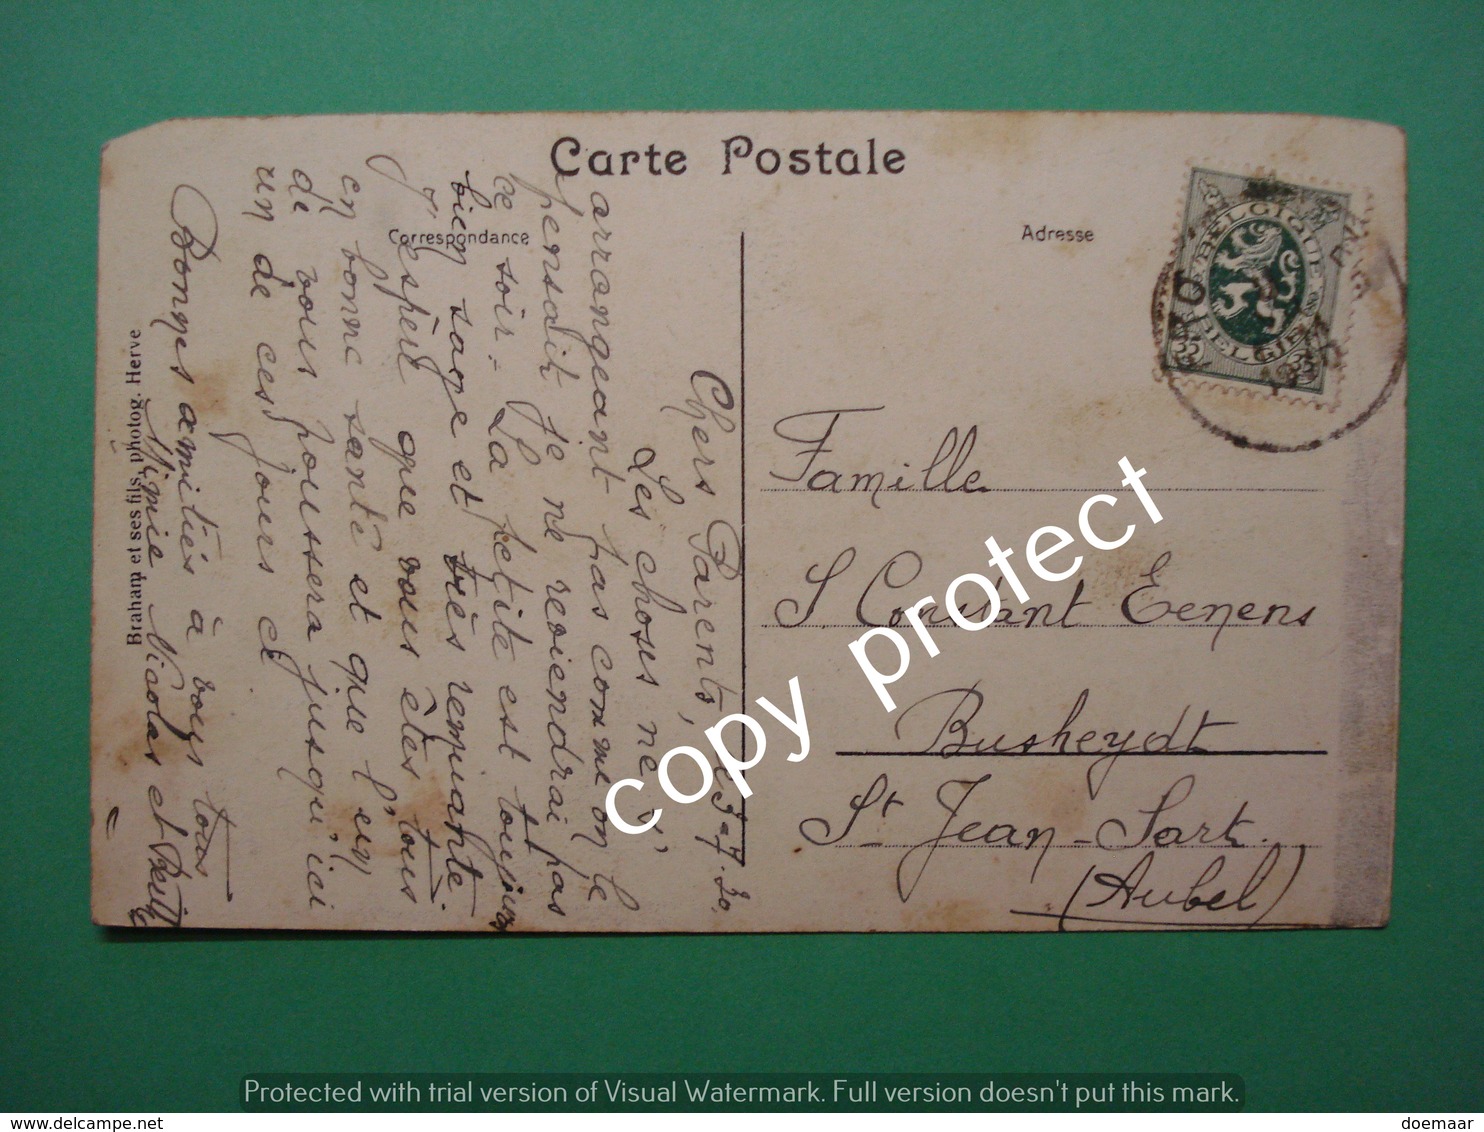 Carte Postale
Correspondance
Adresse
BELGIQUE
BELGIË
35
Chers Parents, 23-7.30.
Les choses ne s'
arrangeant pas comme on le
pensait je ne reviendrai pas
ce soir - La petite est toujours
bien sage et très remuante.
J'espère que vous êtes tous
en bonne santé et que l'un
de vous poussera jusqu'ici
un de ces jours ci
Bonnes amitiés à vous tous
Mimie Nicolas et
Braham et ses fils, photog. Herve
Famille
S. Constant Eenens
Busheydt
St Jean-Sart.
(Aubel)
copy protect
Protected with trial version of Visual Watermark. Full version doesn't put this mark.
www.delcampe.net
doemaar